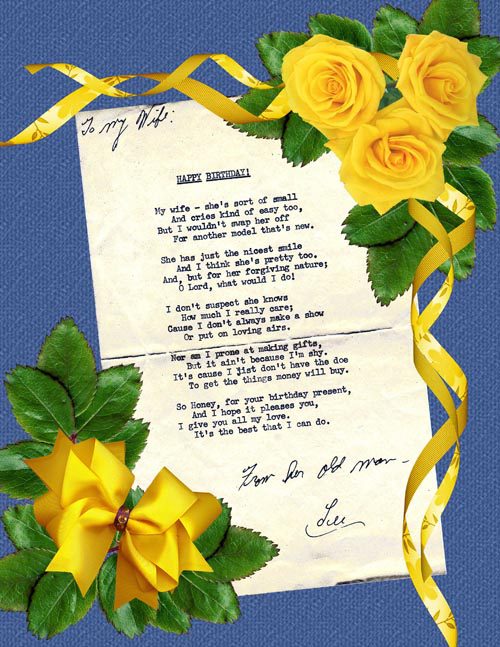 To my Wife:
HAPPY BIRTHDAY!
My wife - she's sort of small
And cries kind of easy too,
But I wouldn't swap her off
For another model that's new.
She has just the nicest smile
And I think she's pretty too.
And, but for her forgiving nature;
O Lord, what would I do!
I don't suspect she knows
How much I really care;
Cause I don't always make a show
Or put on loving airs.
Nor am I prone at making gifts,
But it ain't because I'm shy.
It's cause I just don't have the doe
To get the things money will buy.
So Honey, for your birthday present,
And I hope it pleases you,
I give you all my love.
It's the best that I can do.
From her old man -
Lee